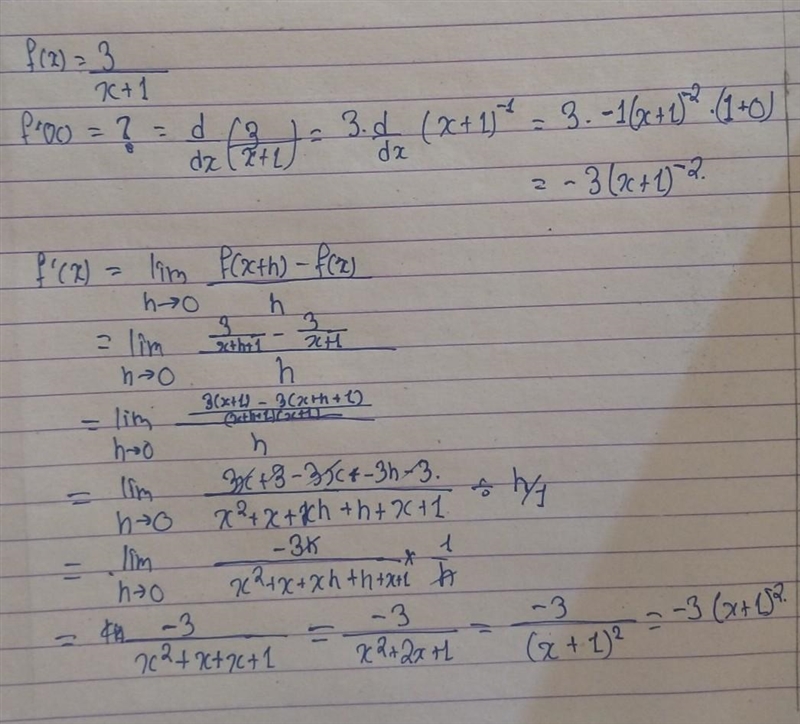 f(x) = 3/(x+1)
f'(x) = ? = d/dx (3/(x+1)) = 3·d/dx (x+1)^-1 = 3·-1(x+1)^-2·(1+0)
= -3(x+1)^-2.
f'(x) = lim h→0 (f(x+h) - f(x))/h
= lim h→0 (3/(x+h+1) - 3/(x+1))/h
= lim h→0 ((3(x+1) - 3(x+h+1))/((x+h+1)(x+1)))/h
= lim h→0 (3x+3-3x-3h-3.)/(x²+x+xh+h+x+1) ÷ h/1
= lim h→0 (-3h)/(x²+x+xh+h+x+1) × 1/h
= -3/(x²+x+x+1) = -3/(x²+2x+1) = -3/(x+1)² = -3(x+1)^2.